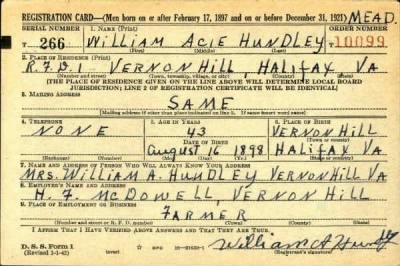 REGISTRATION CARD—(Men born on or after February 17, 1897 and on or before December 31, 1921) MEAD.
SERIAL NUMBER 1. NAME (Print) ORDER NUMBER
T 266 WILLIAM ACIE HUNDLEY T 10099
(First) (Middle) (Last)
2. PLACE OF RESIDENCE (Print)
R.F.D. 1 - VERNON HILL, HALIFAX VA
(Number and street) (Town, township, village, or city) (County) (State)
[THE PLACE OF RESIDENCE GIVEN ON THE LINE ABOVE WILL DETERMINE LOCAL BOARD
JURISDICTION; LINE 2 OF REGISTRATION CERTIFICATE WILL BE IDENTICAL]
3. MAILING ADDRESS
SAME
[Mailing address if other than place indicated on line 2. If same insert word same]
4. TELEPHONE 5. AGE IN YEARS 6. PLACE OF BIRTH
NONE 43 VERNON HILL
DATE OF BIRTH (Town or county)
August 16 1898 HALIFAX VA
(Exchange) (Number) (Mo.) (Day) (Yr.) (State or country)
7. NAME AND ADDRESS OF PERSON WHO WILL ALWAYS KNOW YOUR ADDRESS
MRS. WILLIAM A. HUNDLEY VERNON HILL VA
8. EMPLOYER'S NAME AND ADDRESS
H. F. MCDOWELL, VERNON HILL
9. PLACE OF EMPLOYMENT OR BUSINESS
FARMER
(Number and street or R. F. D. number) (Town) (County) (State)
I AFFIRM THAT I HAVE VERIFIED ABOVE ANSWERS AND THAT THEY ARE TRUE.
D. S. S. Form 1
(Revised 1-1-42) GPO 16-21630-1 William A Hundley